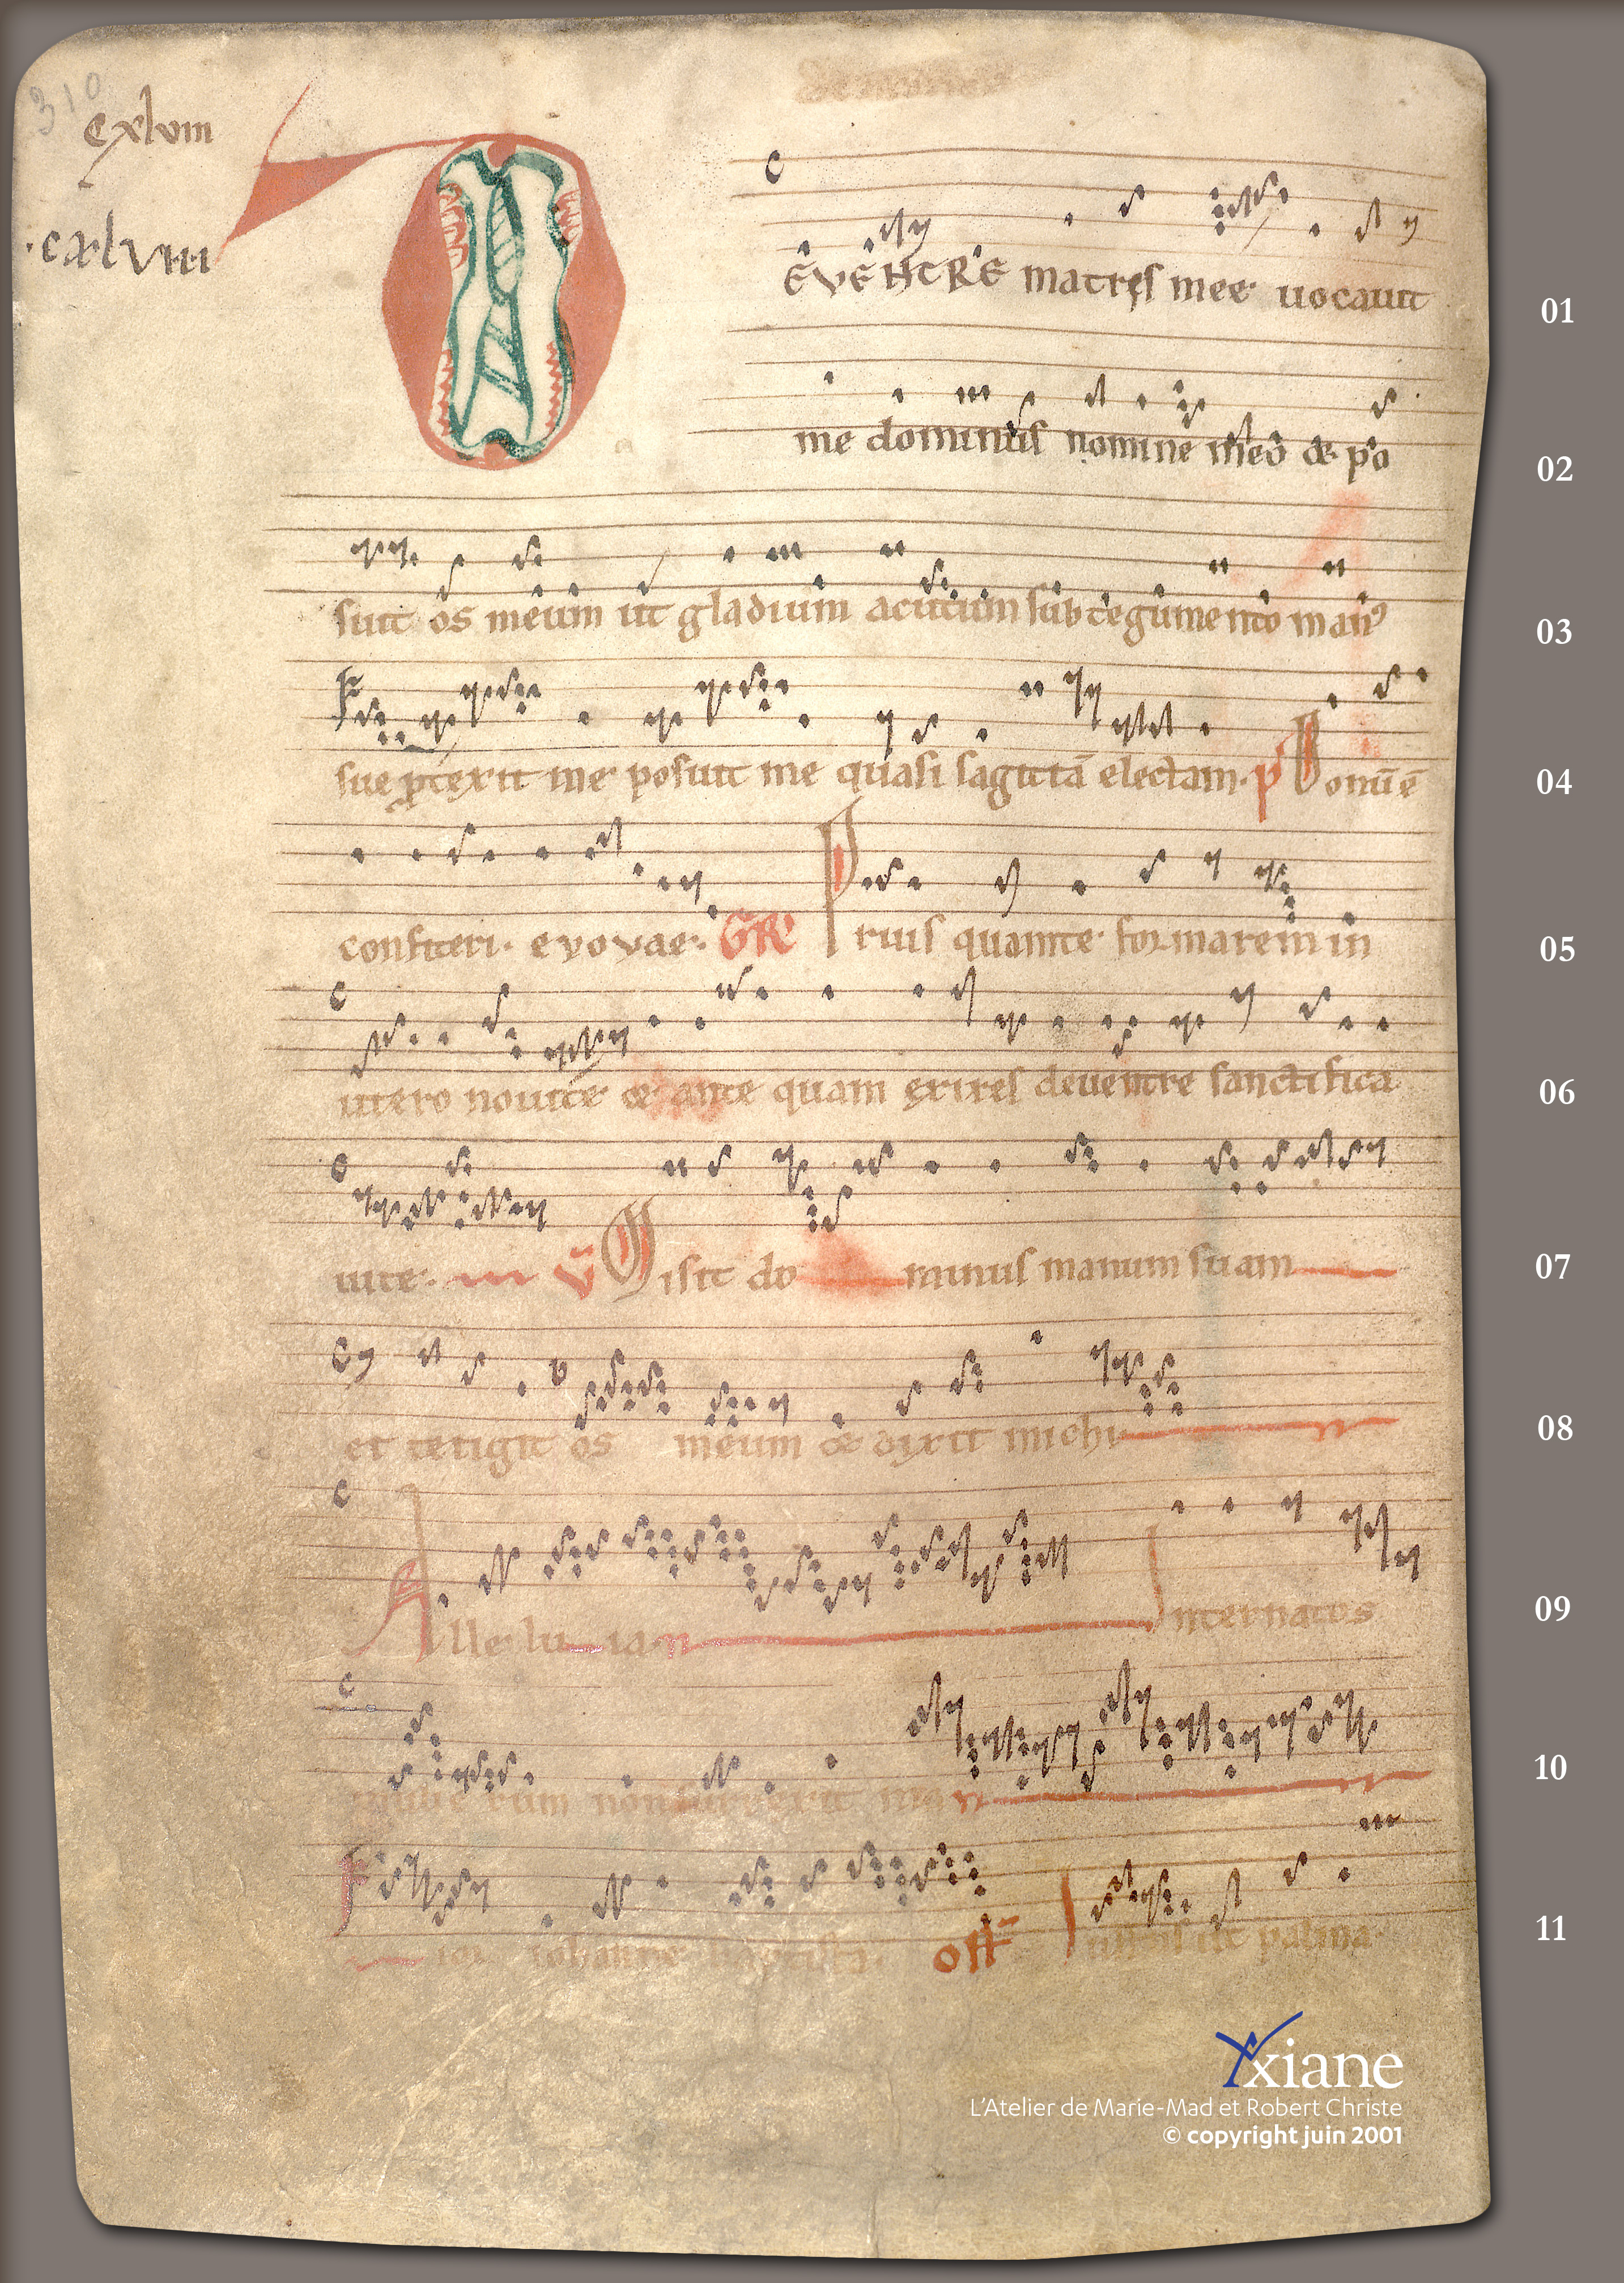 310
cxlviii
.cxlviii
DE VENTRE matris mee uocauit
01
me dominus nomine meo & po
02
suit os meum ut gladium acutum sub tegumento man⁹
03
sue ꝓtexit me posuit me quasi sagittā electam. p Bonū ē
04
confiteri. evovae. GR Prius quam te formarem in
05
utero noui te & ante quam exires de uentre sanctifica
06
ui te. V Misit do minus manum suam
07
et tetigit os meum & dixit michi
08
Alle lu ia Inter natos
09
mulie rum non surrexit ma
10
ior iohanne baptista. off Iustus ut palma.
11
Axiane
L'Atelier de Marie-Mad et Robert Christe
© copyright juin 2001